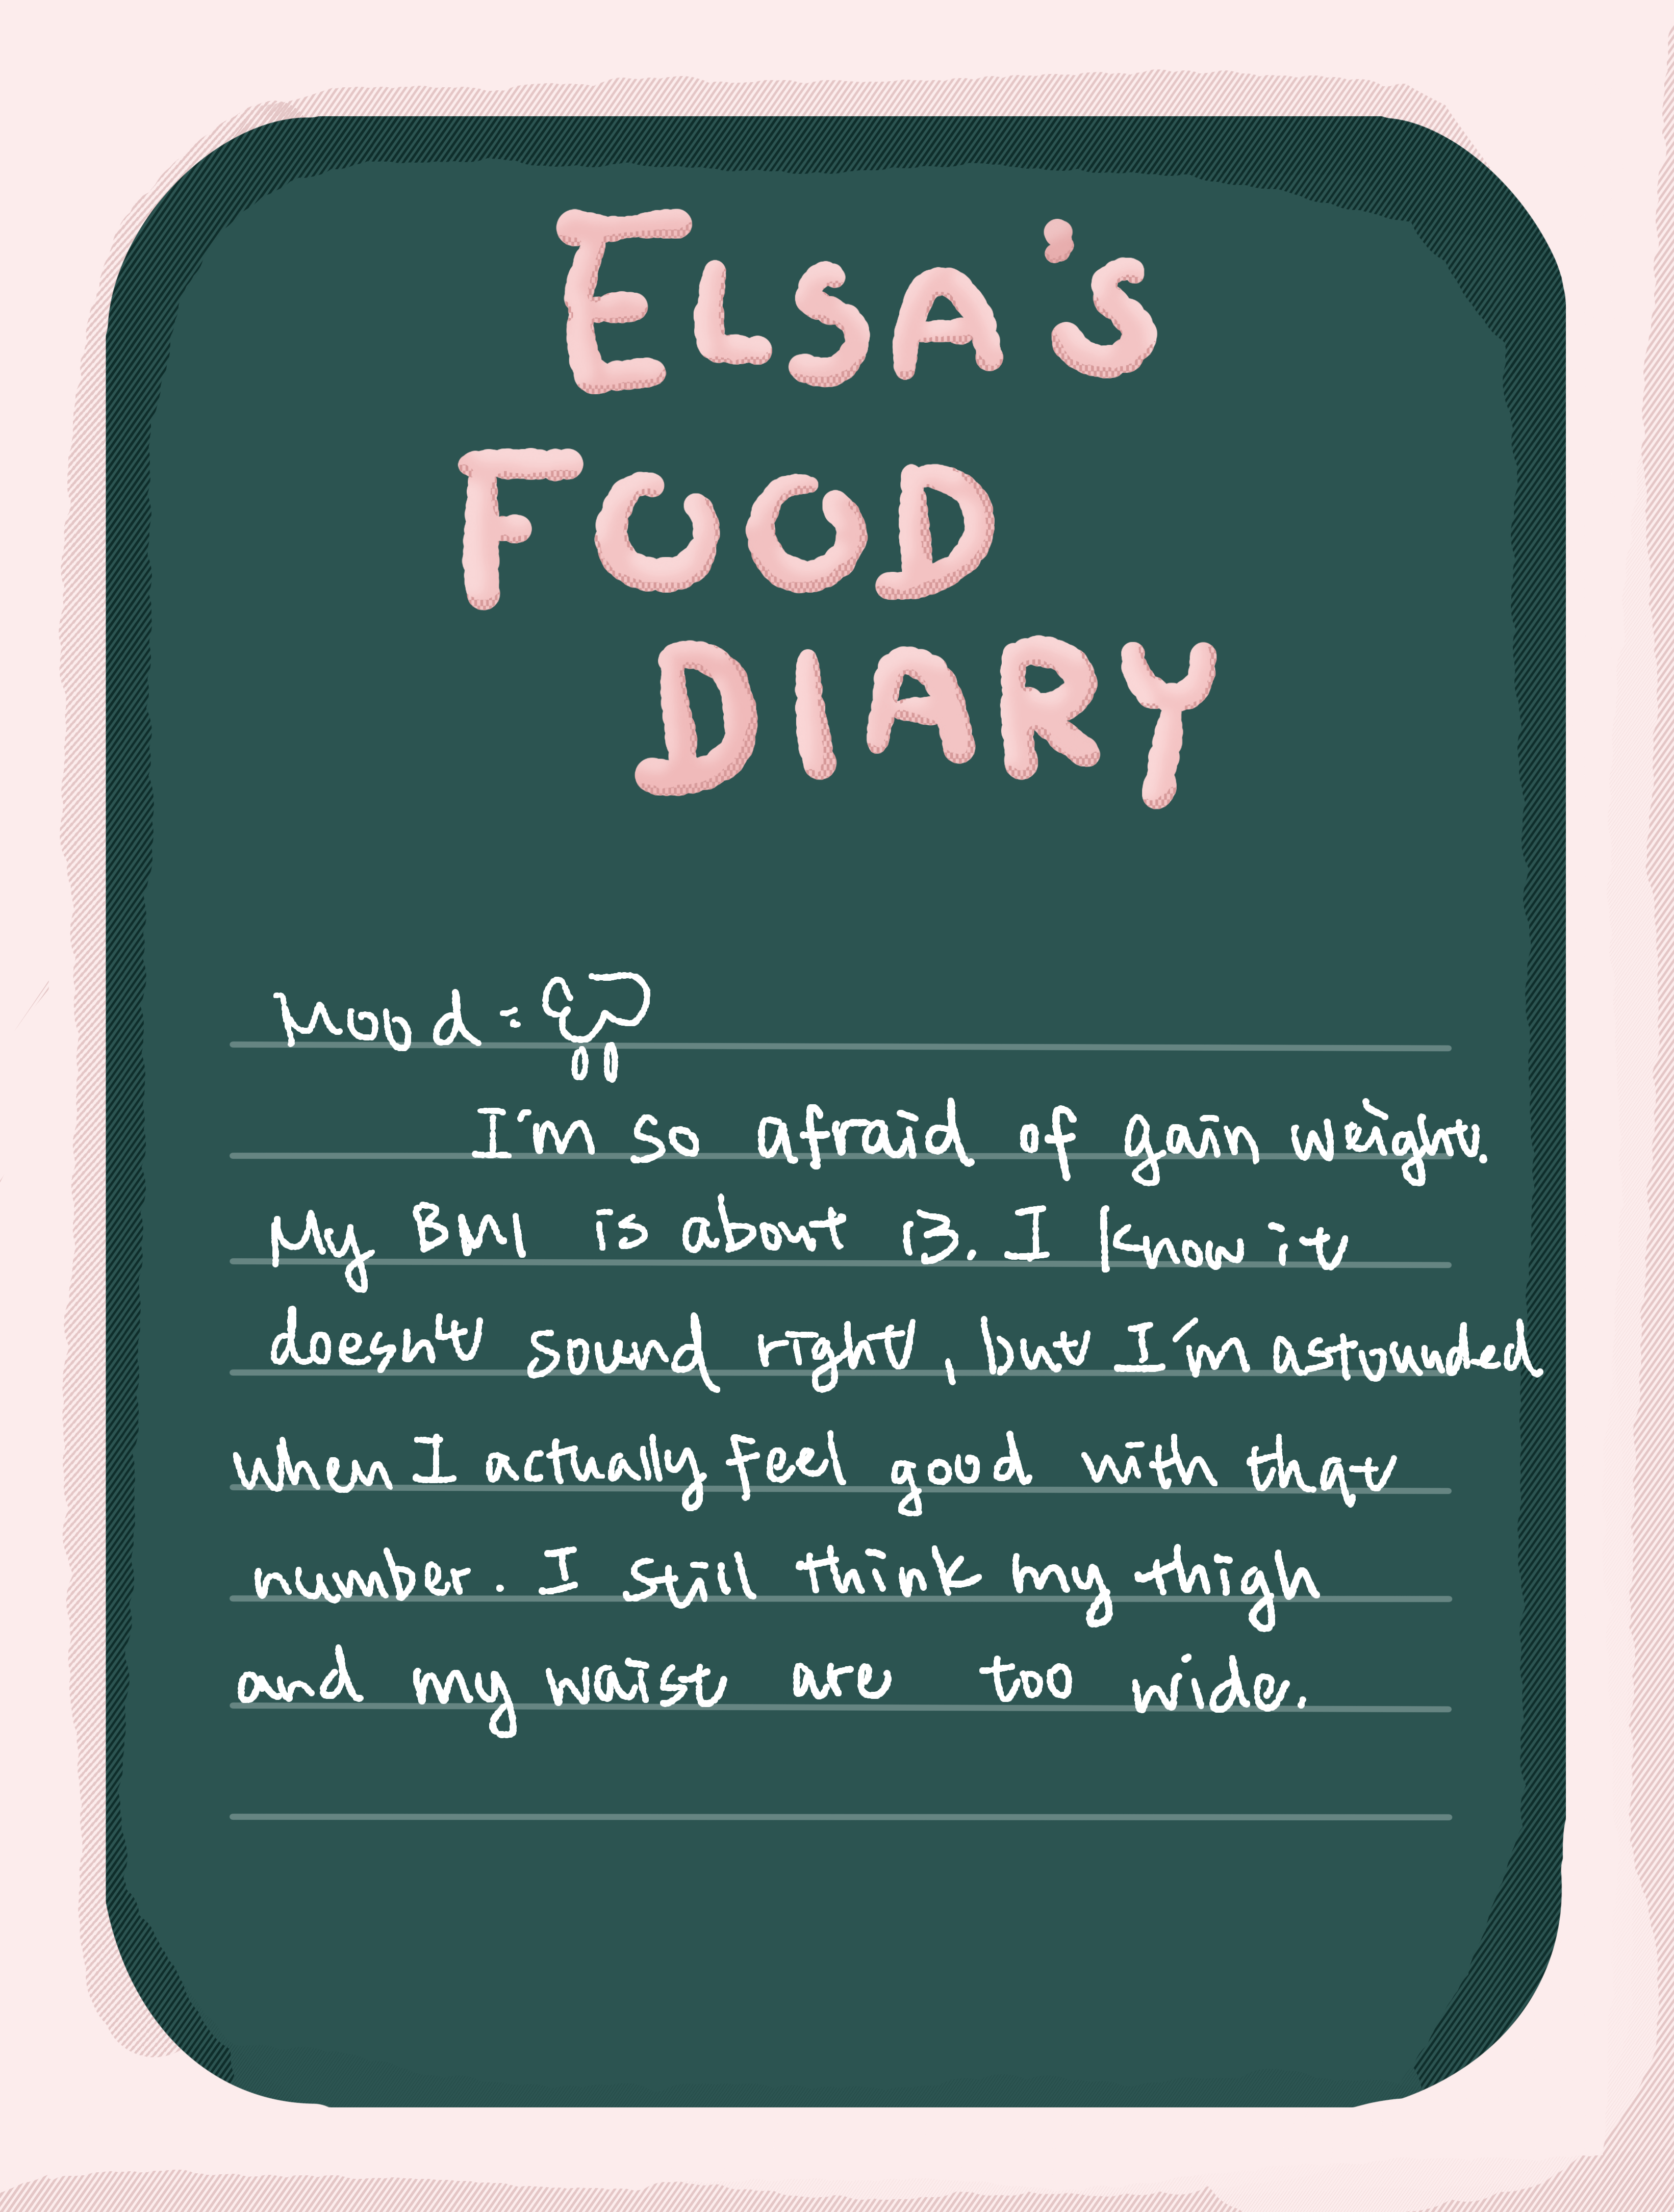 ELSA'S
FOOD
DIARY
Mood =
I'm so afraid of gain weight.
My BMI is about 13. I know it
doesn't sound right, but I'm astounded
when I actually feel good with that
number. I still think my thigh
and my waist are too wide.